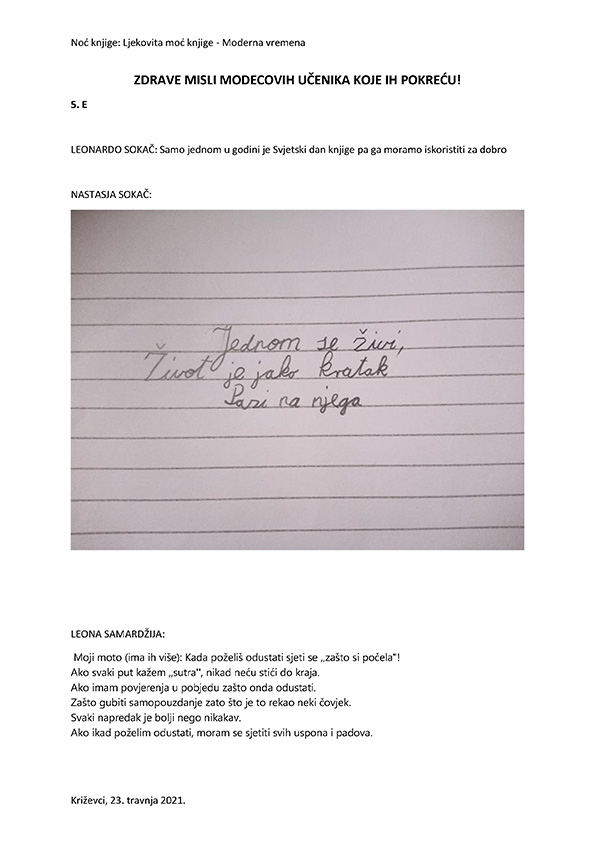 Noć knjige: Ljekovita moć knjige - Moderna vremena
ZDRAVE MISLI MODECOVIH UČENIKA KOJE IH POKREĆU!
5. E
LEONARDO SOKAČ: Samo jednom u godini je Svjetski dan knjige pa ga moramo iskoristiti za dobro
NASTASJA SOKAČ:
Jednom se živi,
Život je jako kratak
Pazi na njega
LEONA SAMARDŽIJA:
Moji moto (ima ih više): Kada poželiš odustati sjeti se „zašto si počela"!
Ako svaki put kažem „sutra", nikad neću stići do kraja.
Ako imam povjerenja u pobjedu zašto onda odustati.
Zašto gubiti samopouzdanje zato što je to rekao neki čovjek.
Svaki napredak je bolji nego nikakav.
Ako ikad poželim odustati, moram se sjetiti svih uspona i padova.
Križevci, 23. travnja 2021.